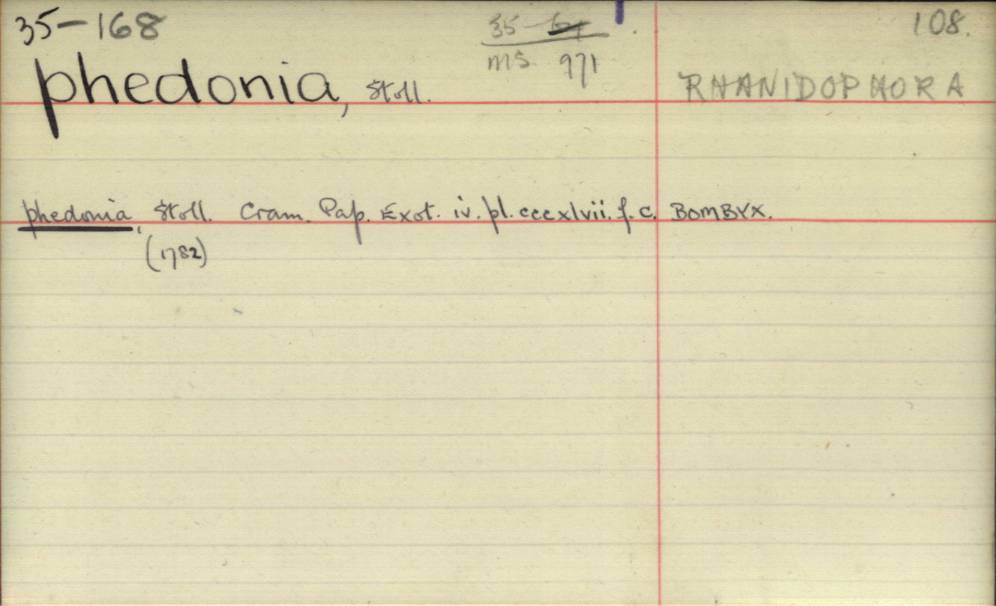 35-168
35-
MS. 971
108.
phedonia, Stoll.
RHANIDOPHORA
phedonia, Stoll. Cram. Pap. Exot. iv. pl. cccxlvii. f. c. BOMBYX.
(1782)